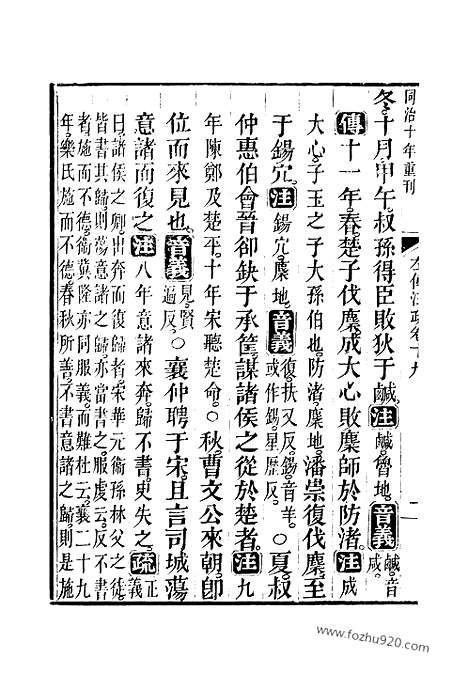 同治十年重刊
左傳注疏卷十九
冬十月甲午叔孫得臣敗狄于鹹。注鹹魯地。音義鹹音咸。
傳十一年春楚子伐麇成大心敗麇師於防渚。注成
大心子玉之子大孫伯也。防渚麇地。潘崇復伐麇至
于鍚穴。注鍚穴麇地。音義復扶又反。鍚音羊。或作錫。星歷反。○夏叔
仲惠伯會晉郤缺于承筐謀諸侯之從於楚者。注九
年陳鄭及楚平。十年宋聽楚命。○秋曹文公來朝即
位而來見也。音義見賢遍反。○襄仲聘于宋且言司城蕩
意諸而復之注八年意諸來奔歸不書史失之。疏正義
曰諸侯之卿出奔而復歸者宋華元衞孫林父之徒
皆書其歸則蕩意諸之歸亦當書之。服虔云反不書
者施而不德。衞冀隆亦同服義。而難杜云襄二十九
年。樂氏施而不德春秋所善。不書意諸之歸則是施
www.fozhu920.com